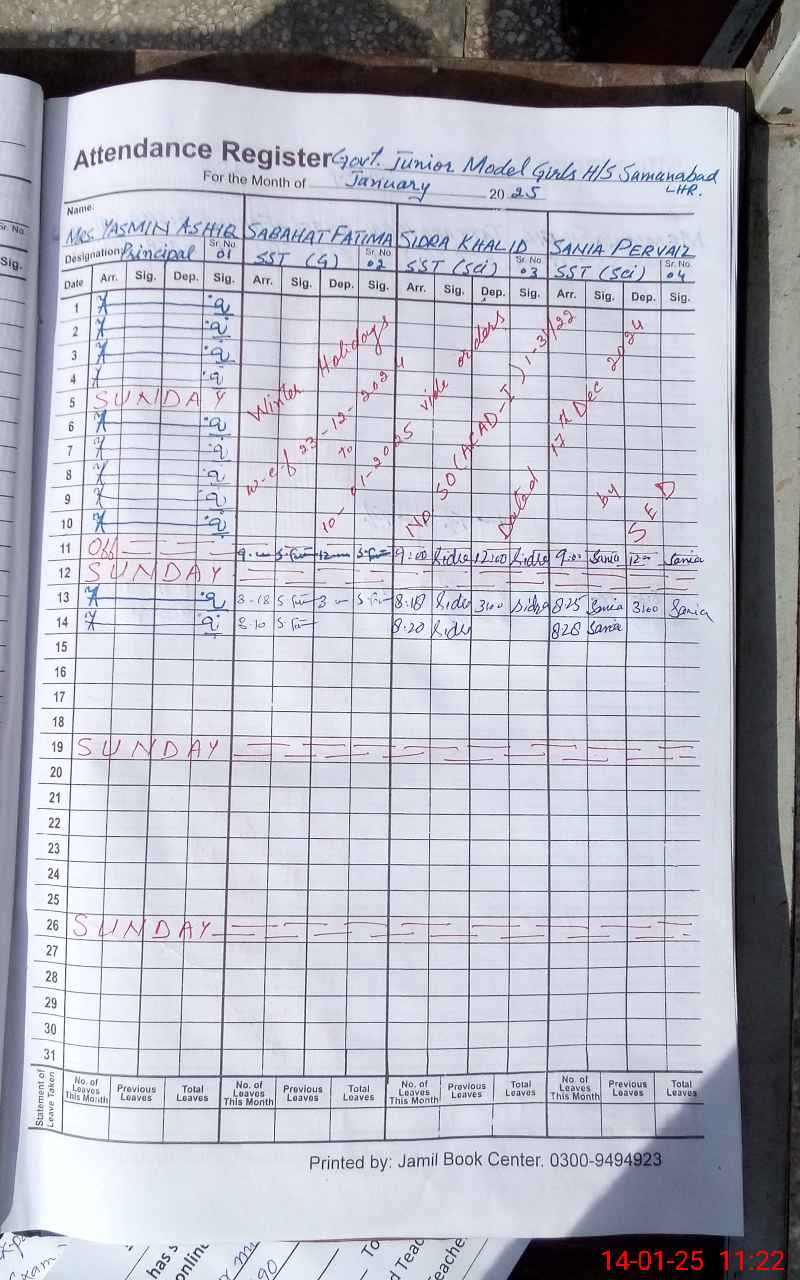 Attendance Register Govt. Junior Model Girls H/S Samanabad
For the Month of January 2025 LHR.
Name:
Mrs. YASMIN ASHIQ SABAHAT FATIMA SIDRA KHALID SANIA PERVAIZ
Designation: Principal Sr. No. 01 SST (G) Sr. No. 02 SST (Sci) Sr. No. 03 SST (Sci) Sr. No. 04
Date Arr. Sig. Dep. Sig. Arr. Sig. Dep. Sig. Arr. Sig. Dep. Sig. Arr. Sig. Dep. Sig.
1
2
3
4
5 SUNDAY
6
7
8
9
10
Winter Holidays
w.e.f 23-12-2024
to
10-01-2025 vide orders
No SO (ACAD-I) 1-31/22
Dated 17th Dec 2024
by
SED
11 Off 9:00 Sidra 12:00 Sidra 9:00 Sania 12:00 Sania
12 SUNDAY
13 8-18 8:18 Sidra 3:00 Sidra 8:25 Sania 3:00 Sania
14 8-10 8:20 Sidra 8:28 Sania
15
16
17
18
19 SUNDAY
20
21
22
23
24
25
26 SUNDAY
27
28
29
30
31
Statement of Leave Taken
No. of Leaves This Month Previous Leaves Total Leaves No. of Leaves This Month Previous Leaves Total Leaves No. of Leaves This Month Previous Leaves Total Leaves No. of Leaves This Month Previous Leaves Total Leaves
Printed by: Jamil Book Center. 0300-9494923
14-01-25 11:22